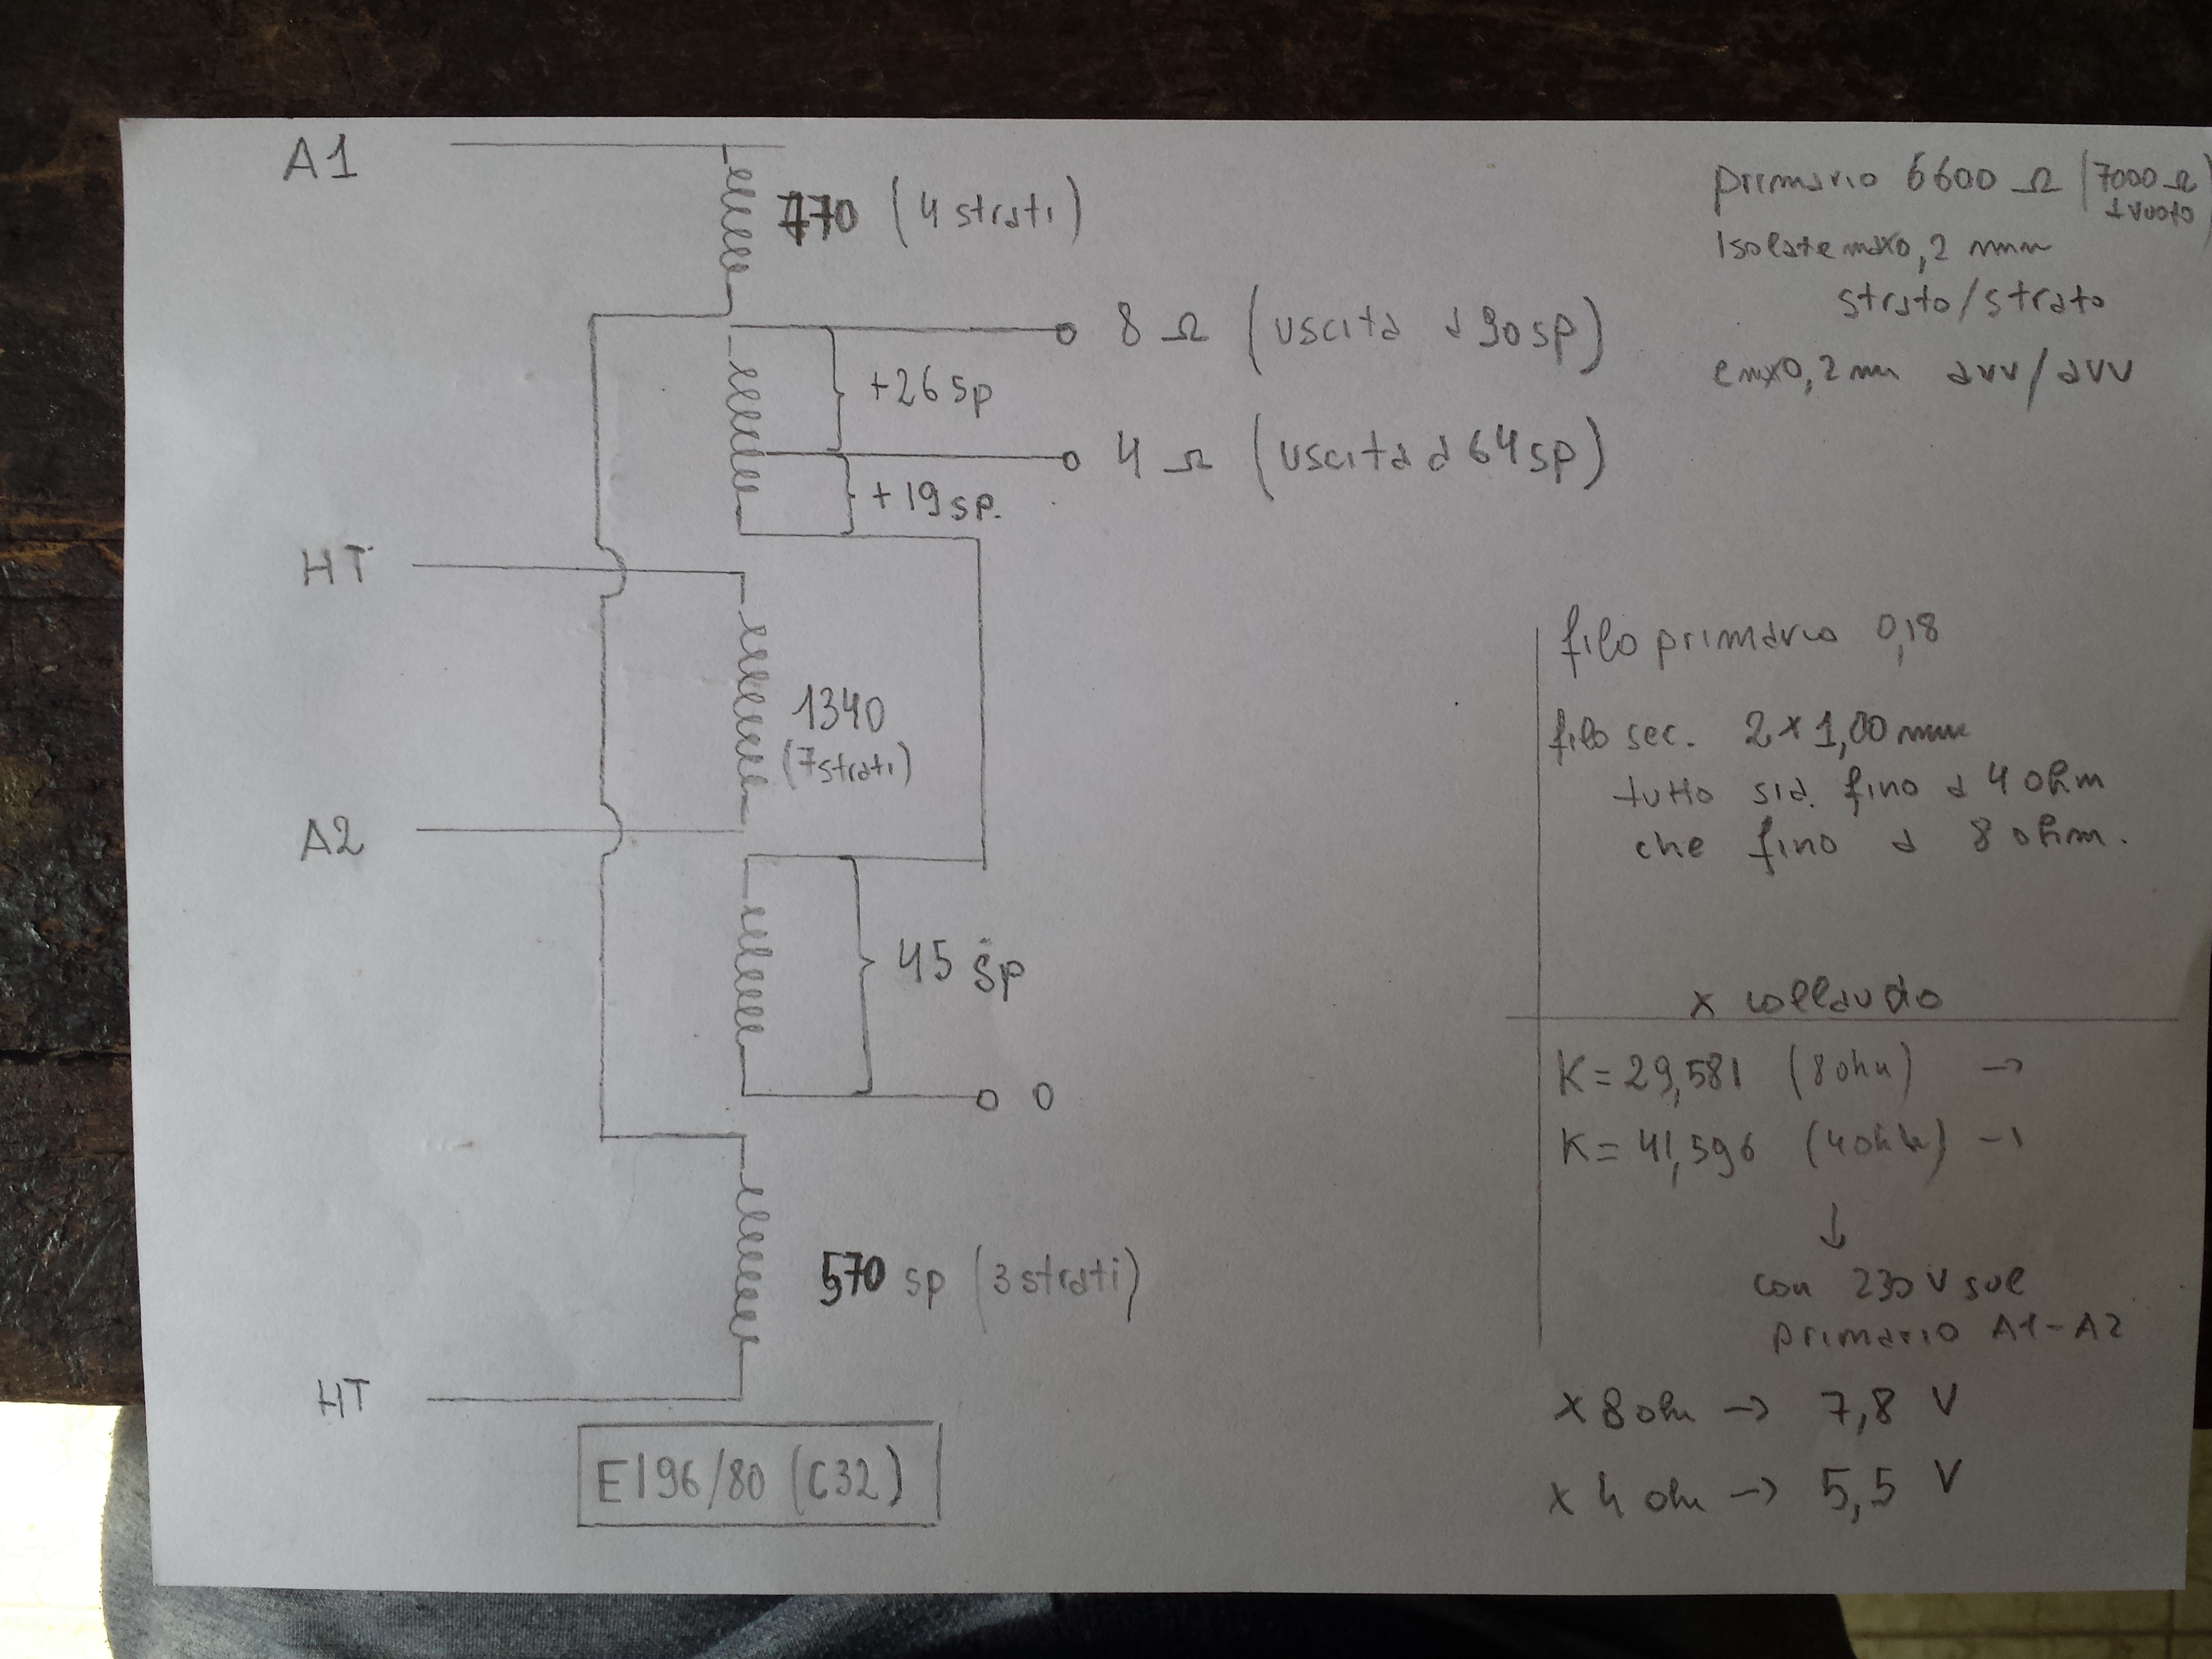 A1
770 (4 strati)
8 Ω (uscita a 90 sp)
+26 sp
4 Ω (uscita a 64 sp)
+19 sp.
HT
1340
(7 strati)
A2
45 sp
0
570 sp (3 strati)
HT
EI96/80 (C32)
primario 6600 Ω (7000 Ω
a vuoto)
Isolate max 0,2 mm
strato/strato
e max 0,2 mm avv/avv
filo primario 0,18
filo sec. 2 x 1,00 mm
tutto sia fino a 4 ohm
che fino a 8 ohm.
x collaudo
K = 29,581 (8 ohm) →
K = 41,596 (4 ohm) →
↓
con 230 V sul
primario A1-A2
x 8 ohm → 7,8 V
x 4 ohm → 5,5 V